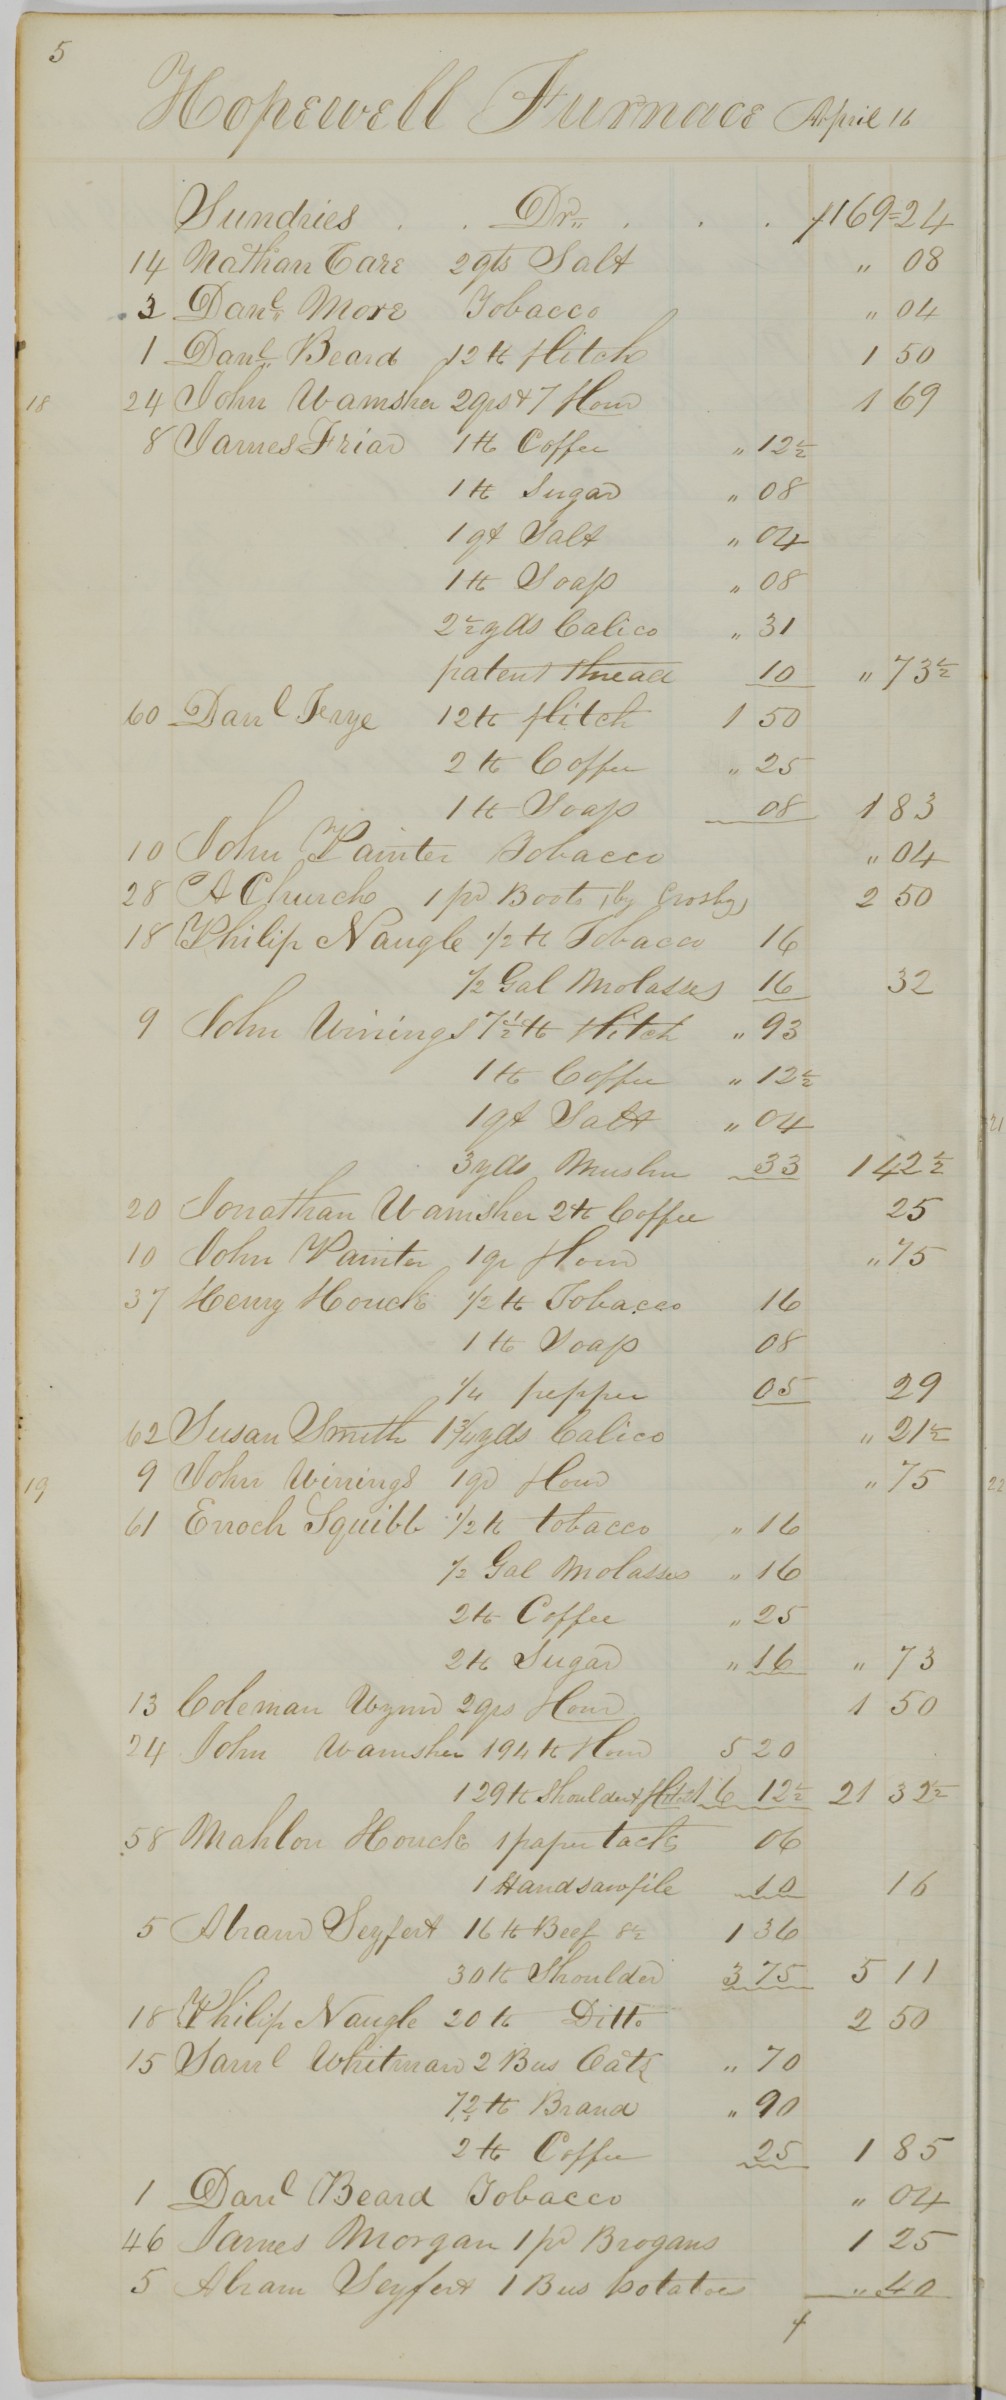 5
Hopewell Furnace April 16
Sundries . . Dr. . . . 169=24
14 Nathan Care 2 qts Salt " 08
3 Danl. More Tobacco " 04
1 Danl. Beard 12 lb flitch 1 50
18 24 John Wamsher 2 qrs & 7 flour 1 69
8 James Friar 1 lb Coffee " 12½
1 lb Sugar " 08
1 qt Salt " 04
1 lb Soap " 08
2½ yds Calico " 31
patent thread 10 " 73½
60 Danl 12 lb flitch 1 50
2 lb Coffee " 25
1 lb Soap 08 1 83
10 John Painter Tobacco " 04
28 A Church 1 pr Boots (by Crosby) 2 50
18 Philip Naugle 1/2 lb Tobacco 16
1/2 Gal Molasses 16 32
9 John Winings 7½ lb flitch " 93
1 lb Coffee " 12½
1 qt Salt " 04
3 yds Muslin 33 1 42½
20 Jonathan Wamsher 2 lb Coffee 25
10 John Painter 1 qr flour " 75
37 Henry Houck 1/2 lb Tobacco 16
1 lb Soap 08
1/4 pepper 05 29
62 Susan Smith 1 3/4 yds Calico " 21½
19 9 John Winings 1 qr flour " 75
61 Enoch Squibb 1/2 lb tobacco " 16
1/2 Gal Molasses " 16
2 lb Coffee " 25
2 lb Sugar " 16 " 73
13 Coleman Wynn 2 qrs flour 1 50
24 John Wamsher 194 lb flour 5 20
129 lb Shoulder & flitch 16 12½ 21 32½
58 Mahlon Houck 1 paper tacks 06
1 Handsawfile 10 16
5 Abram Seyfert 16 lb Beef 8½ 1 36
30 lb Shoulder 3 75 5 11
18 Philip Naugle 20 lb Ditto 2 50
15 Saml Whitman 2 Bus Oats " 70
72 lb Brand " 90
2 lb Coffee 25 1 85
1 Danl Beard Tobacco " 04
46 James Morgan 1 pr Brogans 1 25
5 Abram Seyfert 1 Bus potatoes " 40
21
22